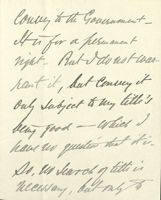 Convey to the Government –
It is for a permanent
right. But I do not war-
rant it, but Convey it
only subject to my title's
being good – which I
have no question that it is.
So, no search of title is
necessary, but only to